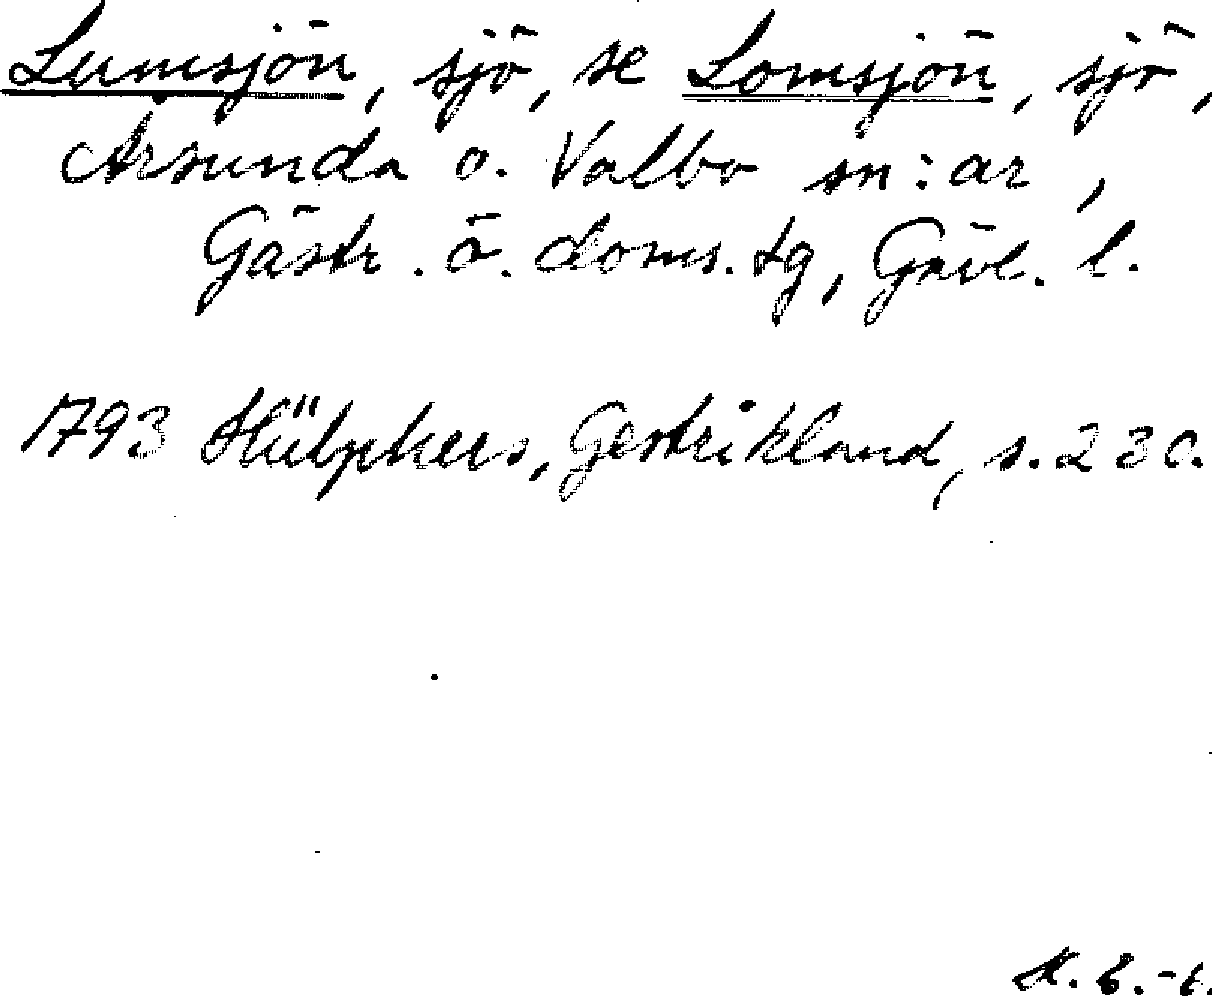 Lumsjön, sjö, se Lomsjön, sjö,
Årsunda o. Valbo sn:ar,
Gästr. ö. doms.tg, Gävl. l.
1793 Hülphers, Gestrikland, s. 230.